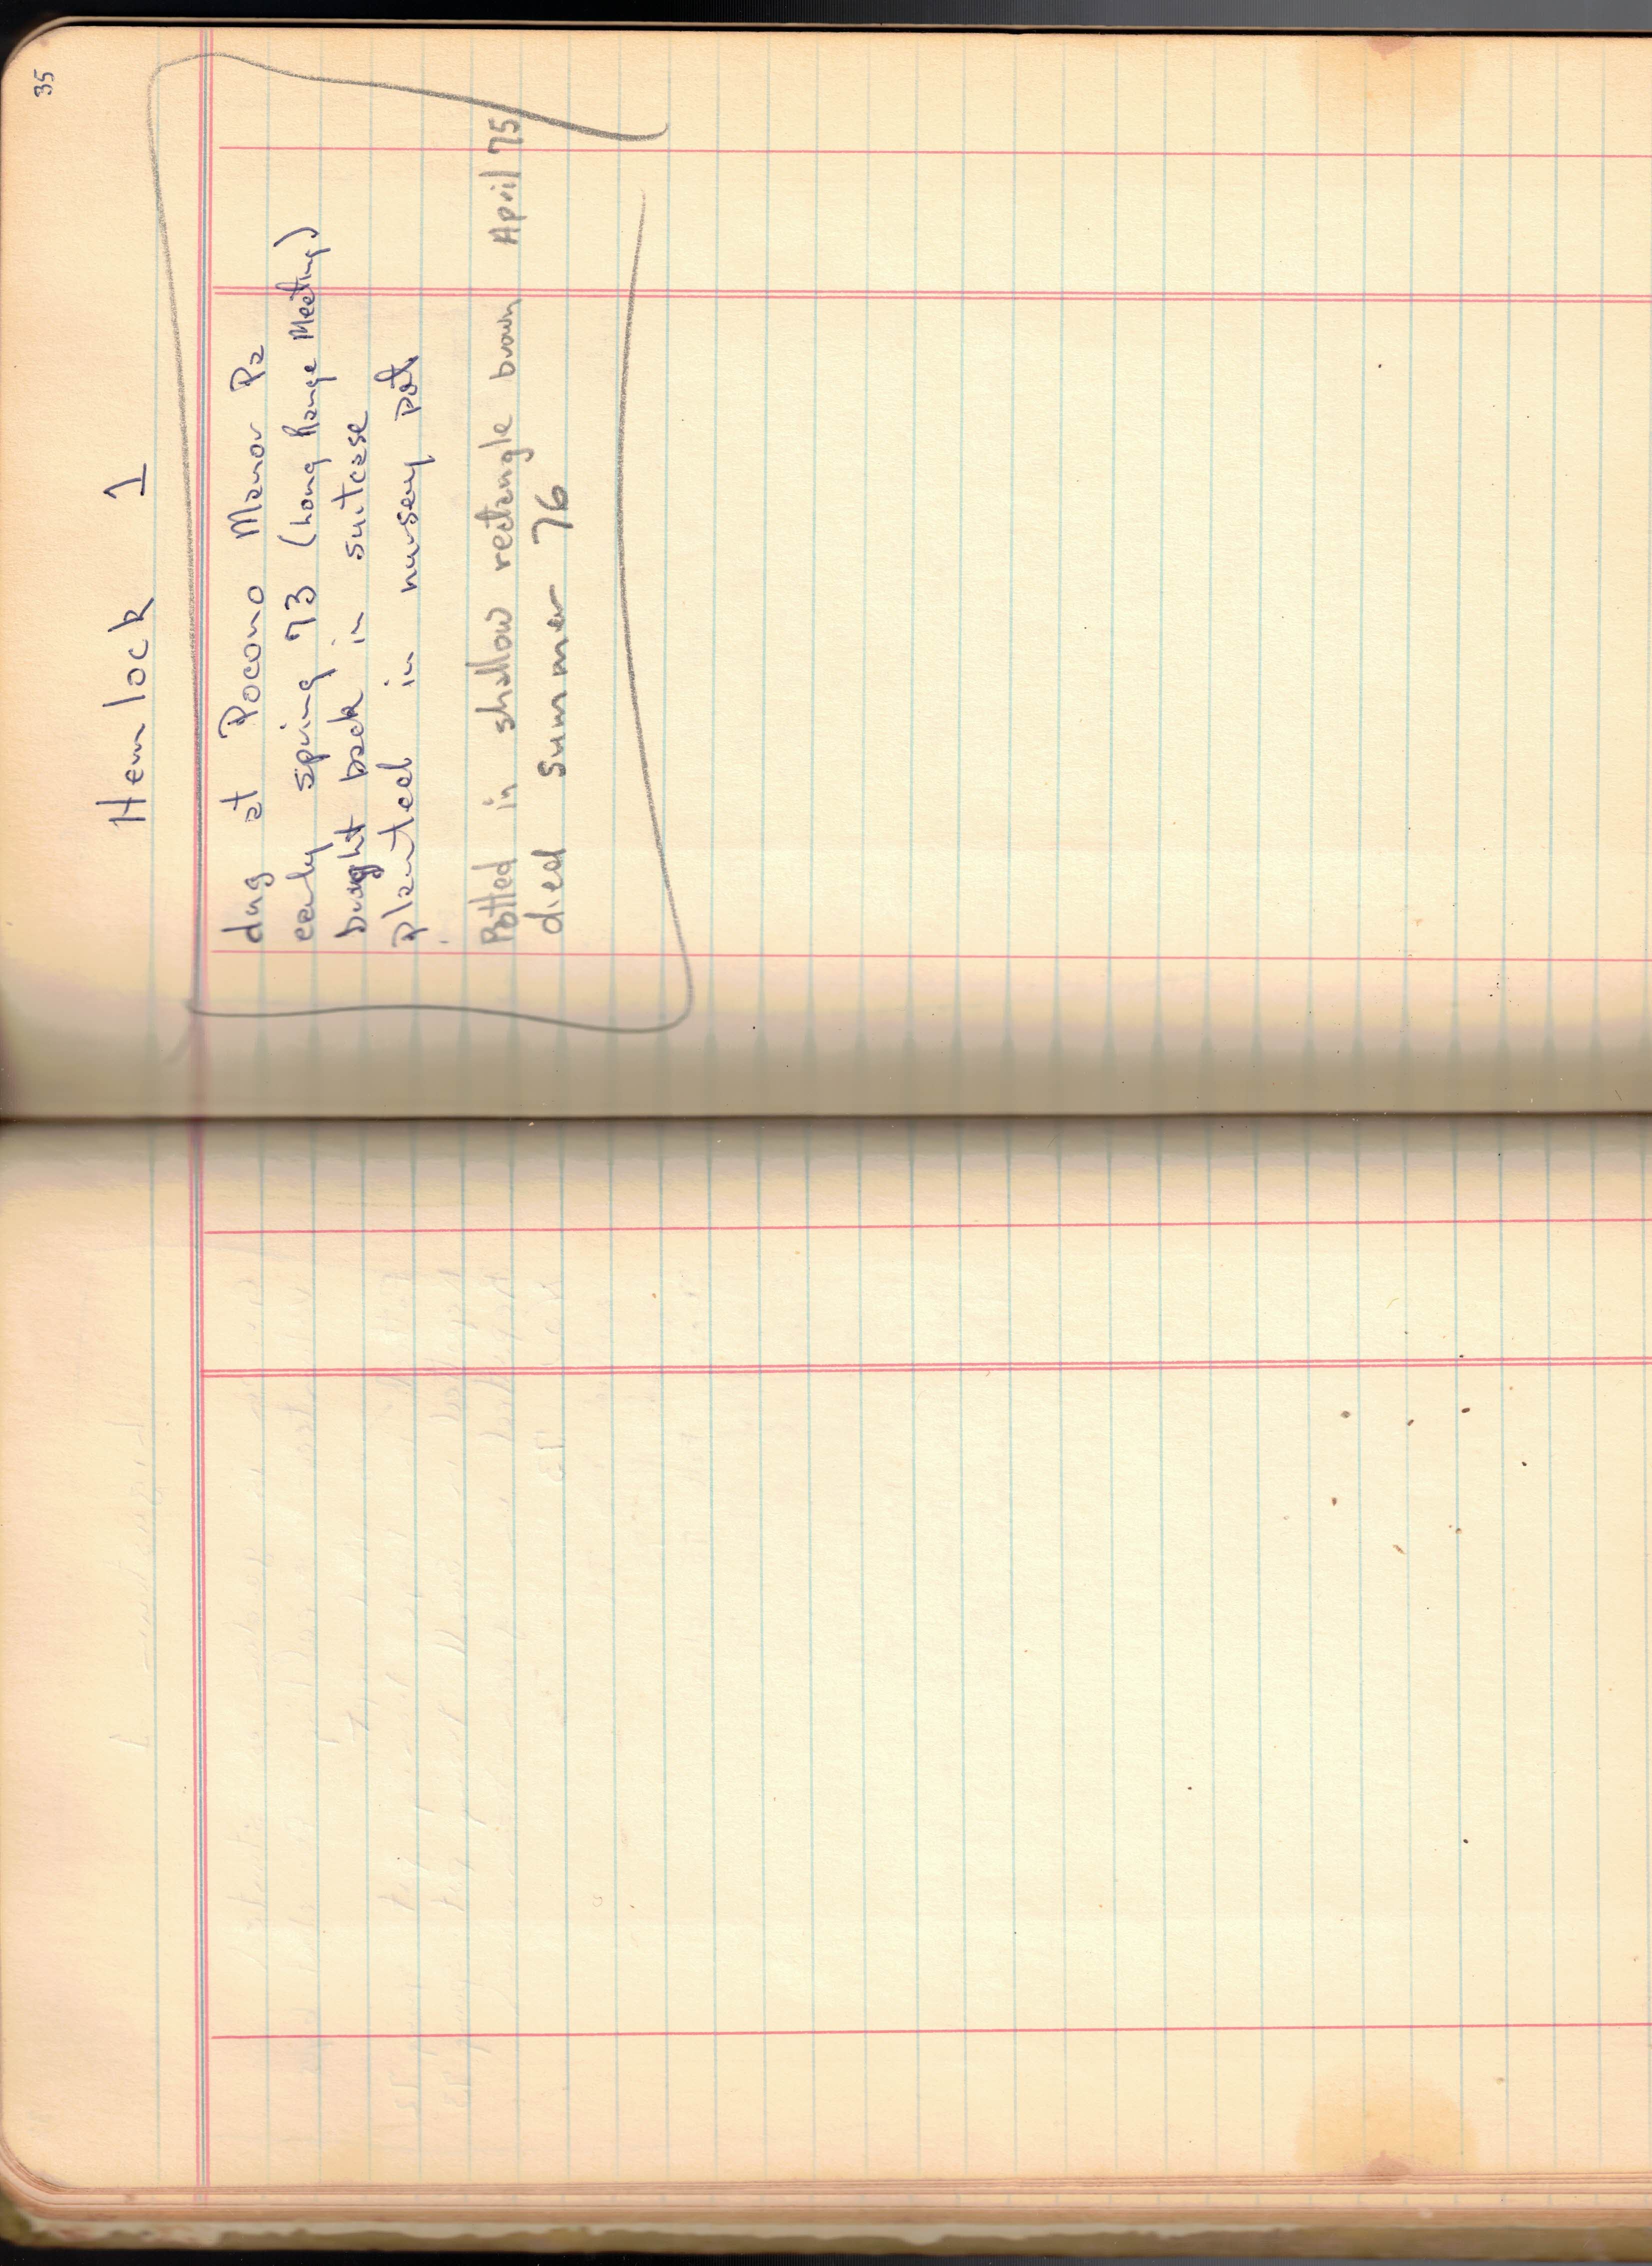 35
Hemlock 1
dug at Pocono Manor Pa
early spring 73 (Long Range Meeting)
brought back in suitcase
planted in nursery pot
Potted in shallow rectangle brown April 75
died summer 76